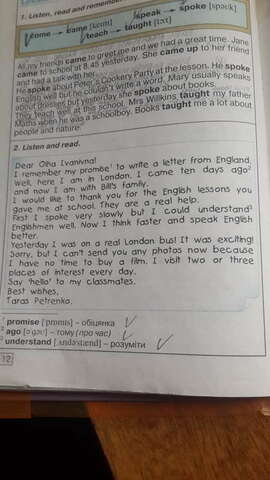 1. Listen, read and remember
come → came [keım]
speak → spoke [spəʊk]
teach → taught [tɔ:t]
All my friends came to greet me and we had a great time. Jane
came to school at 8.45 yesterday. She came up to her friend
and had a talk with her.
He spoke about Peter's Cookery Party at the lesson. He spoke
English well but he couldn't write a word. Mary usually speaks
about dresses but yesterday she spoke about books.
They teach well at this school. Mrs Wilkins taught my father
Maths when he was a schoolboy. Books taught me a lot about
people and nature.
2. Listen and read.
Dear Olha Ivanivna!
I remember my promise¹ to write a letter from England.
Well, here I am in London. I came ten days ago²
and now I am with Bill's family.
I would like to thank you for the English lessons you
gave me at school. They are a real help.
First I spoke very slowly but I could understand³
Englishmen well. Now I think faster and speak English
better.
Yesterday I was on a real London bus! It was exciting!
Sorry, but I can't send you any photos now because
I have no time to buy a film. I visit two or three
places of interest every day.
Say 'hello' to my classmates.
Best wishes,
Taras Petrenko.
promise ['prɒmıs] – обіцянка
ago [ə'gəʊ] – тому (про час)
understand [ˌʌndə'stænd] – розуміти
12